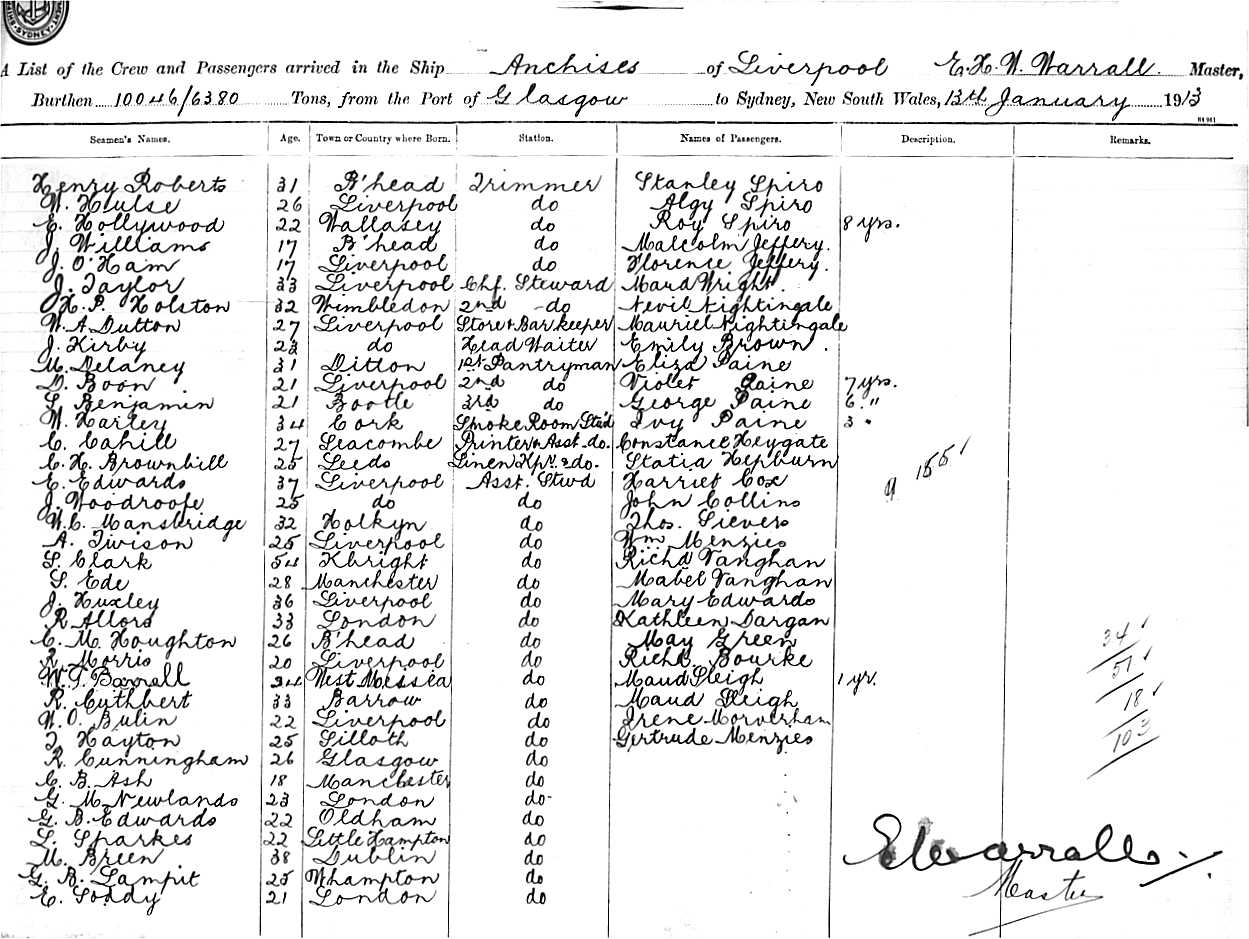 SYDNEY
A List of the Crew and Passengers arrived in the Ship Anchises of Liverpool E. H. W. Warrall. Master,
Burthen 10046/6380 Tons, from the Port of Glasgow to Sydney, New South Wales, 13th January 1913
Seamen's Names. Age. Town or Country where Born. Station. Names of Passengers. Description. Remarks.
Henry Roberts 31 B'head Trimmer Stanley Spiro
W. Hulse 26 Liverpool do Algy Spiro
E. Hollywood 22 Wallasey do Roy Spiro 8 yrs.
J. Williams 17 B'head do Malcolm Jeffery.
J. O'Ham 17 Liverpool do Florence Jeffery.
J. Taylor 33 Liverpool Chf. Steward Maud Wright.
H. P. Holston 32 Wimbledon 2nd do Nevil Nightingale
W. A Dutton 27 Liverpool Store & Barkeeper Mauriel Nightingale
J. Kirby 23 do Head Waiter Emily Brown.
M. Delaney 31 Ditton 1st Pantryman Eliza Paine
D. Boon 21 Liverpool 2nd do Violet Paine 7 yrs.
S. Benjamin 21 Bootle 3rd do George Paine 6 "
W. Harley 34 Cork Smoke Room Std Ivy Paine 3 "
C. Cahill 27 Seacombe Printer & Asst. do. Constance Heygate
C. H. Brownbill 25 Leeds Linen Kpr. & do. Statia Hepburn
E. Edwards 37 Liverpool Asst. Stwd Harriet Cox
J. Woodroofe 25 do do John Collins
W. C. Mansbridge 32 Holkyn do Thos. Sievers
A. Twison 25 Liverpool do Wm. Menzies
S. Clark 54 Kbright do Richd Vanghan
S. Ede 28 Manchester do Mabel Vanghan
J. Huxley 36 Liverpool do Mary Edwards
R Allors 33 London do Kathleen Dargan
C. M. Houghton 26 B'head do May Green
R. Morris 20 Liverpool do Richd. Bourke
W. T. Barrall 34 West Messea do Maud Sleigh 1 yr.
R. Cuthbert 33 Barrow do Maud Sleigh
W. O. Bulin 22 Liverpool do Irene Morverham
T. Hayton 25 Silloth do Gertrude Menzies
R. Cunningham 26 Glasgow do
C. B. Ash 18 Manchester do
G. M. Newlands 23 London do
G. B. Edwards 22 Oldham do
L. Sparkes 22 Little Hampton do
M. Breen 38 Dublin do
G. B. Lampit 25 W'hampton do
E. Soady 21 London do
155
34
51
18
103
EWarrall
Master